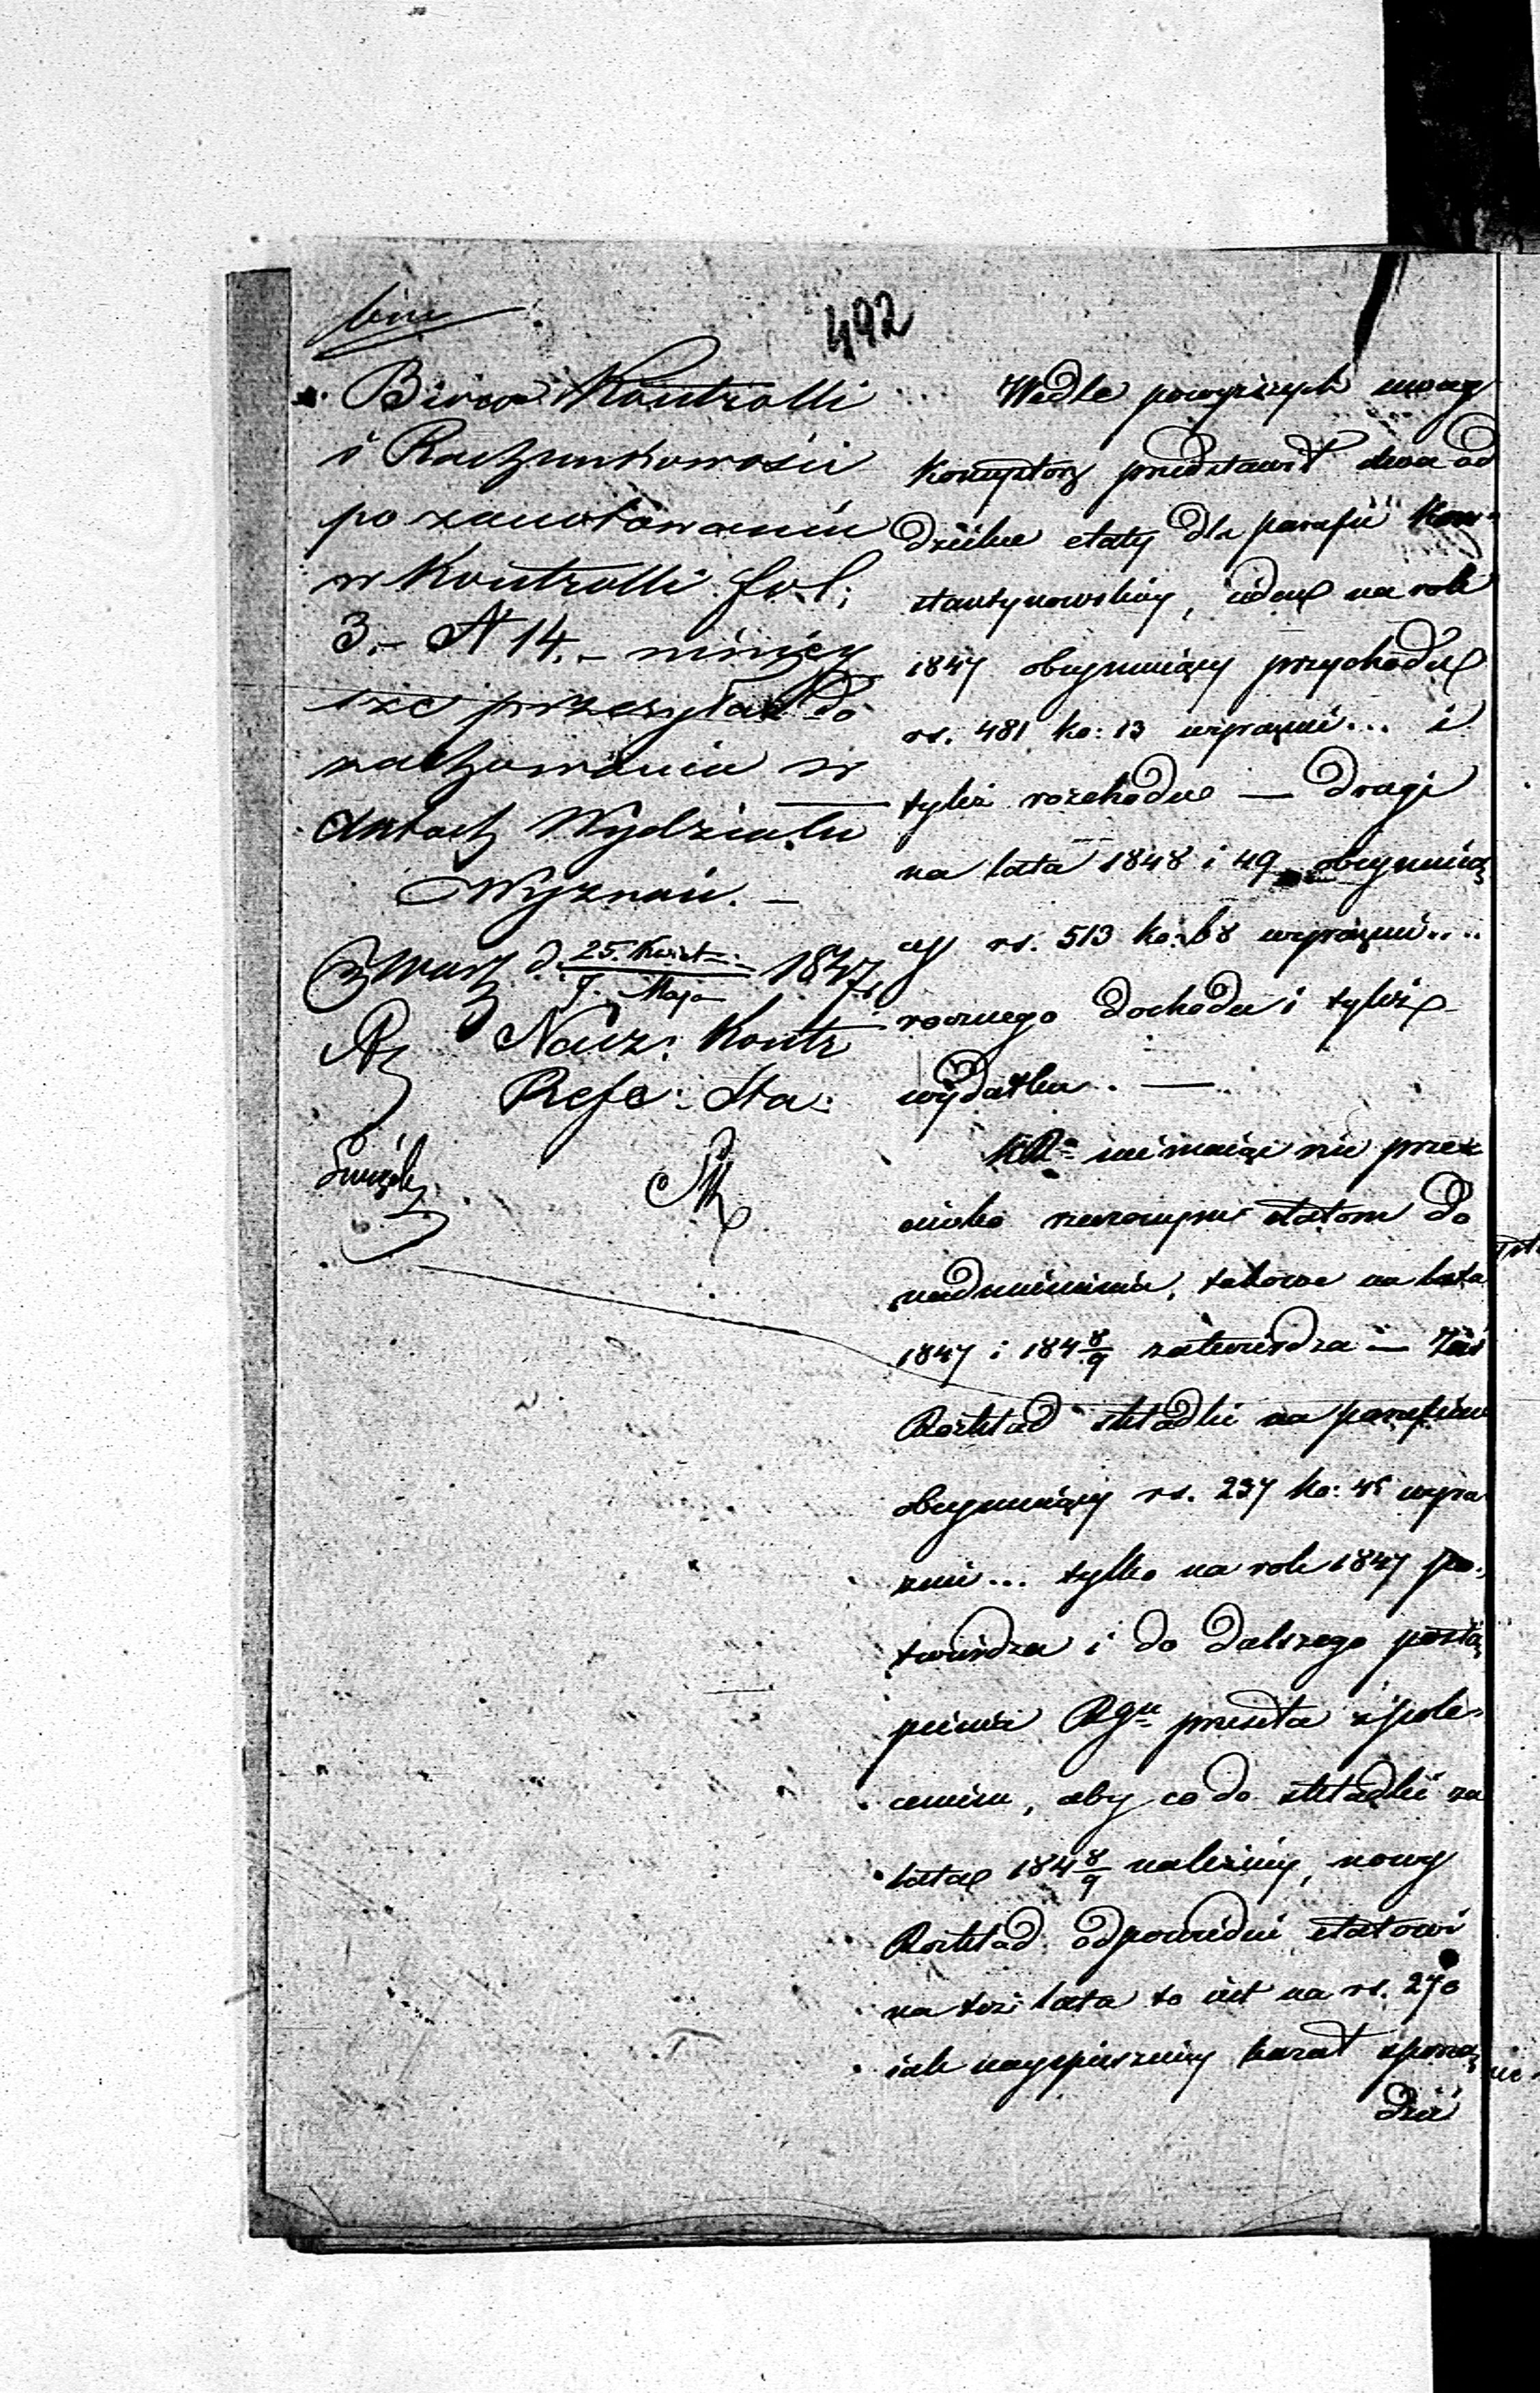 492
Biuro Kontrolli
i Rachunkowości
po zanotowaniu
w Kontrolli fol:
3.- N 14.- niniey
sze przesyła do
zachowania w
Aktach Wydziału
Wyznań. —
Z Warsz d. 25. Kwiet / 7. Maja 1847 r.
Nacz: Kontr
Refe: Sta:
Wedle powyższych uwag
Konsystorz przedstawił dwa od
dzielne etaty dla parafii Kon-
stantynowskiey, ieden na rok
1847 obeymuiący przychodu
rs. 481 ko: 13 wyraźnie... i
tyleż rozchodu — drugi
na lata 1848 i 49 obeymuią
cy rs. 513 ko: 68 wyraźnie....
rocznego dochodu i tyleż
wydatku. —
KR. nie maiąc nic prze
ciwko rzeczonym etatom do
nadmienienia, takowe na lata
1847 i 184 8/9 zatwierdza — Zaś
Rozkład składki na parafian
obeymuiący rs. 237 ko: 45 wyra
źnie... tylko na rok 1847 po-
twierdza i do dalszego postą
pienia Rgu przesyła z pole-
ceniem, aby co do składki za
lata 184 8/9 należney, nowy
Rozkład odpowiedni etatowi
na też lata to iest na rs. 270
iak nayspieszniey kazał sporzą
dzić